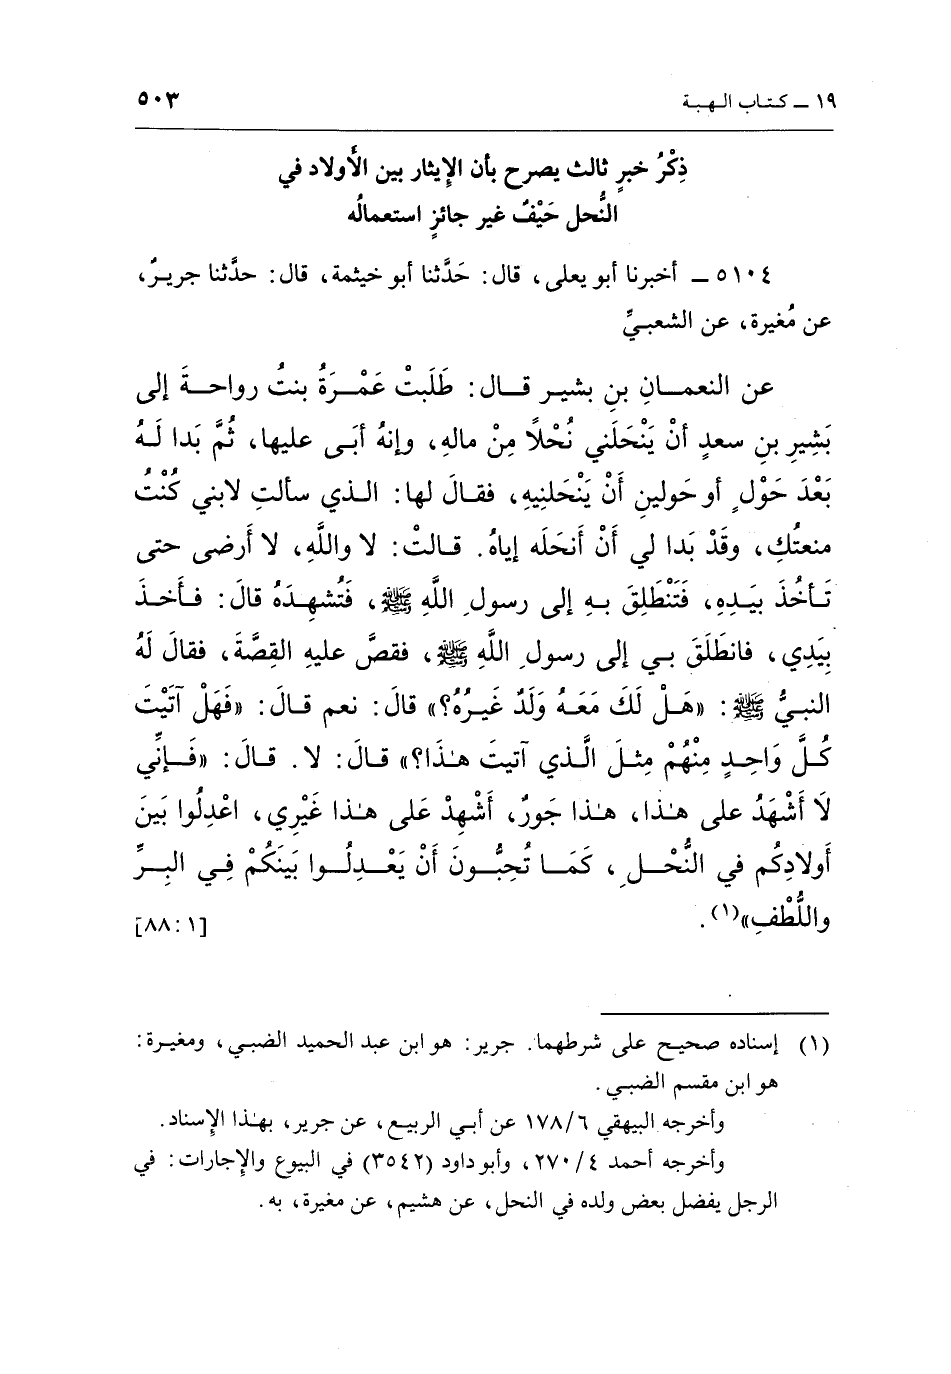 ١٩ ــ كتاب الهبة ٥٠٣
ذِكْرُ خبرٍ ثالث يصرح بأن الإِيثار بين الأَولاد في
النُّحل حَيْفٌ غير جائزٍ استعمالُه
٥١٠٤ ــ أخبرنا أبو يعلى، قال: حَدَّثنا أبو خيثمة، قال: حدَّثنا جريرٌ،
عن مُغيرة، عن الشعبيِّ
عن النعمانِ بنِ بشيرٍ قال: طَلَبتْ عَمْرَةُ بنتُ رواحةَ إلى
بَشِيرِ بنِ سعدٍ أنْ يَنْحَلَني نُحْلاً مِنْ مالهِ، وإنهُ أبَى عليها، ثُمَّ بَدا لَهُ
بَعْدَ حَوْلٍ أو حَولينِ أَنْ يَنْحَلنِيهِ، فقالَ لها: الذي سألتِ لابني كُنْتُ
منعتُكِ، وقَدْ بَدا لي أَنْ أنحَلَه إياهُ. قالتْ: لا واللَّهِ، لا أَرضى حتى
تَأخُذَ بيَدِهِ، فَتَنْطَلِقَ بهِ إلى رسولِ اللَّهِ ﷺ، فَتُشهِدَهُ قالَ: فأخذَ
بِيَدِي، فانطَلَقَ بي إلى رسولِ اللَّهِ ﷺ، فقصَّ عليهِ القِصَّةَ، فقالَ لَهُ
النبيُّ ﷺ: «هَلْ لَكَ مَعَهُ وَلَدٌ غَيرُهُ؟» قالَ: نعم قالَ: «فَهَلْ آتَيْتَ
كُلَّ وَاحِدٍ مِنْهُمْ مِثلَ الَّذي آتيتَ هٰذا؟» قالَ: لا. قالَ: «فَإنِّي
لَا أَشْهَدُ على هٰذا، هٰذا جَورٌ، أَشْهِدْ عَلى هٰذا غَيْرِي، اعْدِلُوا بَينَ
أَولادِكُم في النُّحْلِ، كَمَا تُحِبُّونَ أَنْ يَعْدِلُوا بَينَكُمْ فِي البِرِّ
واللُّطْفِ»(١). [١: ٨٨]
(١) إسناده صحيح على شرطهما. جرير: هو ابن عبد الحميد الضبي، ومغيرة:
هو ابن مقسم الضبي.
وأخرجه البيهقي ٦/١٧٨ عن أبي الربيع، عن جرير، بهٰذا الإِسناد.
وأخرجه أحمد ٤/٢٧٠، وأبو داود (٣٥٤٢) في البيوع والإِجارات: في
الرجل يفضل بعض ولده في النحل، عن هشيم، عن مغيرة، به.